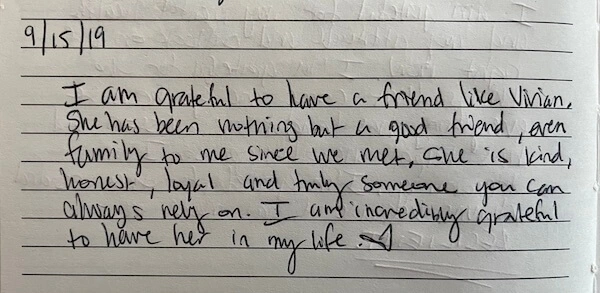 9/15/19
I am grateful to have a friend like Vivian.
She has been nothing but a good friend, even
family to me since we met, she is kind,
honest, loyal and truly someone you can
always rely on. I am incredibly grateful
to have her in my life.